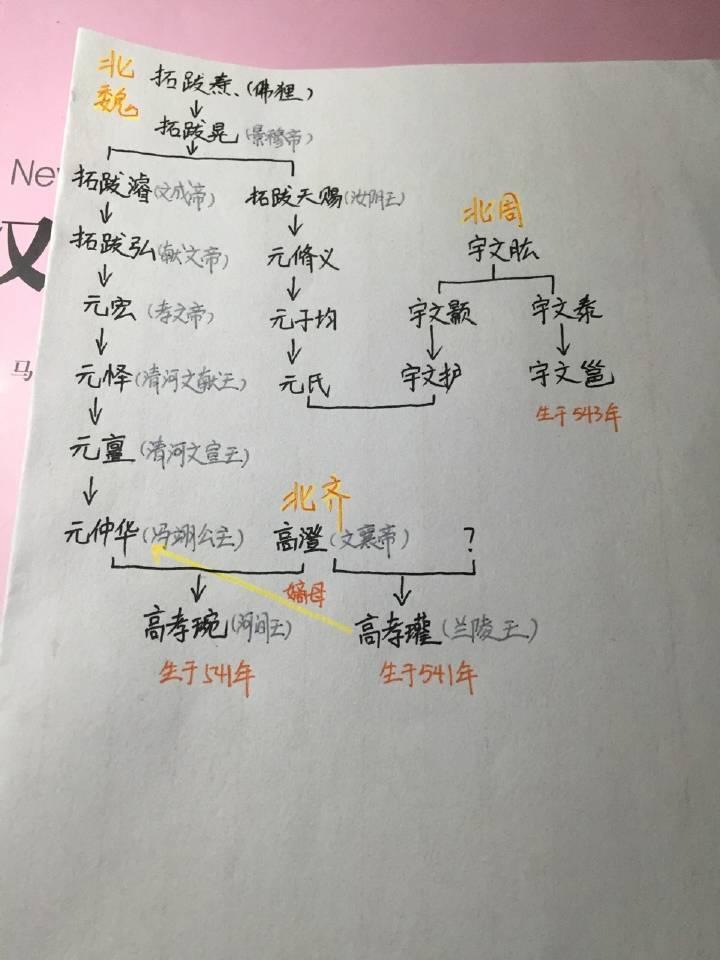 北魏
拓跋焘(佛狸)
拓跋晃(景穆帝)
New
拓跋濬(文成帝) 拓跋天赐(汝阴王)
北周
汉
拓跋弘(献文帝) 元脩义 宇文肱
元宏(孝文帝) 元子均 宇文颢 宇文泰
马
元怿(清河文献王) 元氏 宇文护 宇文邕
生于543年
元亶(清河文宣王)
北齐
元仲华(冯翊公主) 高澄(文襄帝) ?
嫡母
高孝琬(河间王) 高孝瓘(兰陵王)
生于541年 生于541年